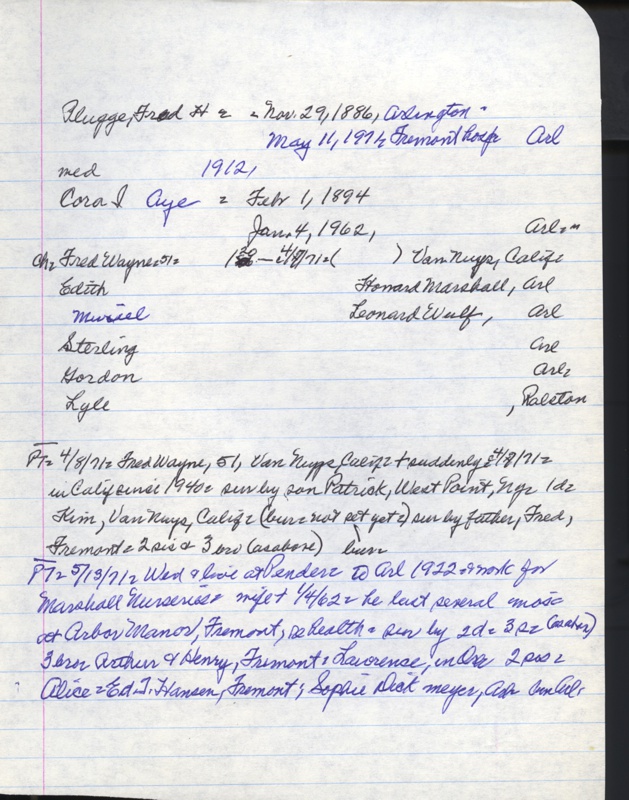 Plugge, Fred H = Nov. 29, 1886, Arlington =
May 11, 1971, Fremont hosp Arl
med 1912,
Cora I Aye = Febr 1, 1894
Jan. 4, 1962, Arl="
ch= Fred Wayne=51= 4/8/71=( ) Van Nuys, Calif=
Edith Howard Marshall, Arl
Muriel Leonard Wulf, Arl
Sterling Arl
Gordon Arl=
Lyle , Ralston
PT= 4/8/71= Fred Wayne, 51, Van Nuys, Calif= + suddenly 4/8/71=
in Calif since 1940= sur by son Patrick, West Point, Ny= 1d=
Kim, Van Nuys, Calif= (bur= not set yet=) sur by father, Fred,
Fremont= 2 sis & 3 bro (as above) burr
PT= 5/13/71= Wed & live at Pender= to Arl 1922 = work for
Marshall Nurseries= wife + 1/4/62= he last several mos=
at Arbor Manor, Fremont, health= sur by 2d= 3s= (as above)
3 bro= Arthur & Henry, Fremont= Lawrence, in Ore 2 sis=
Alice=Ed J. Hansen, Fremont; Sophie Dickmeyer, Arl=